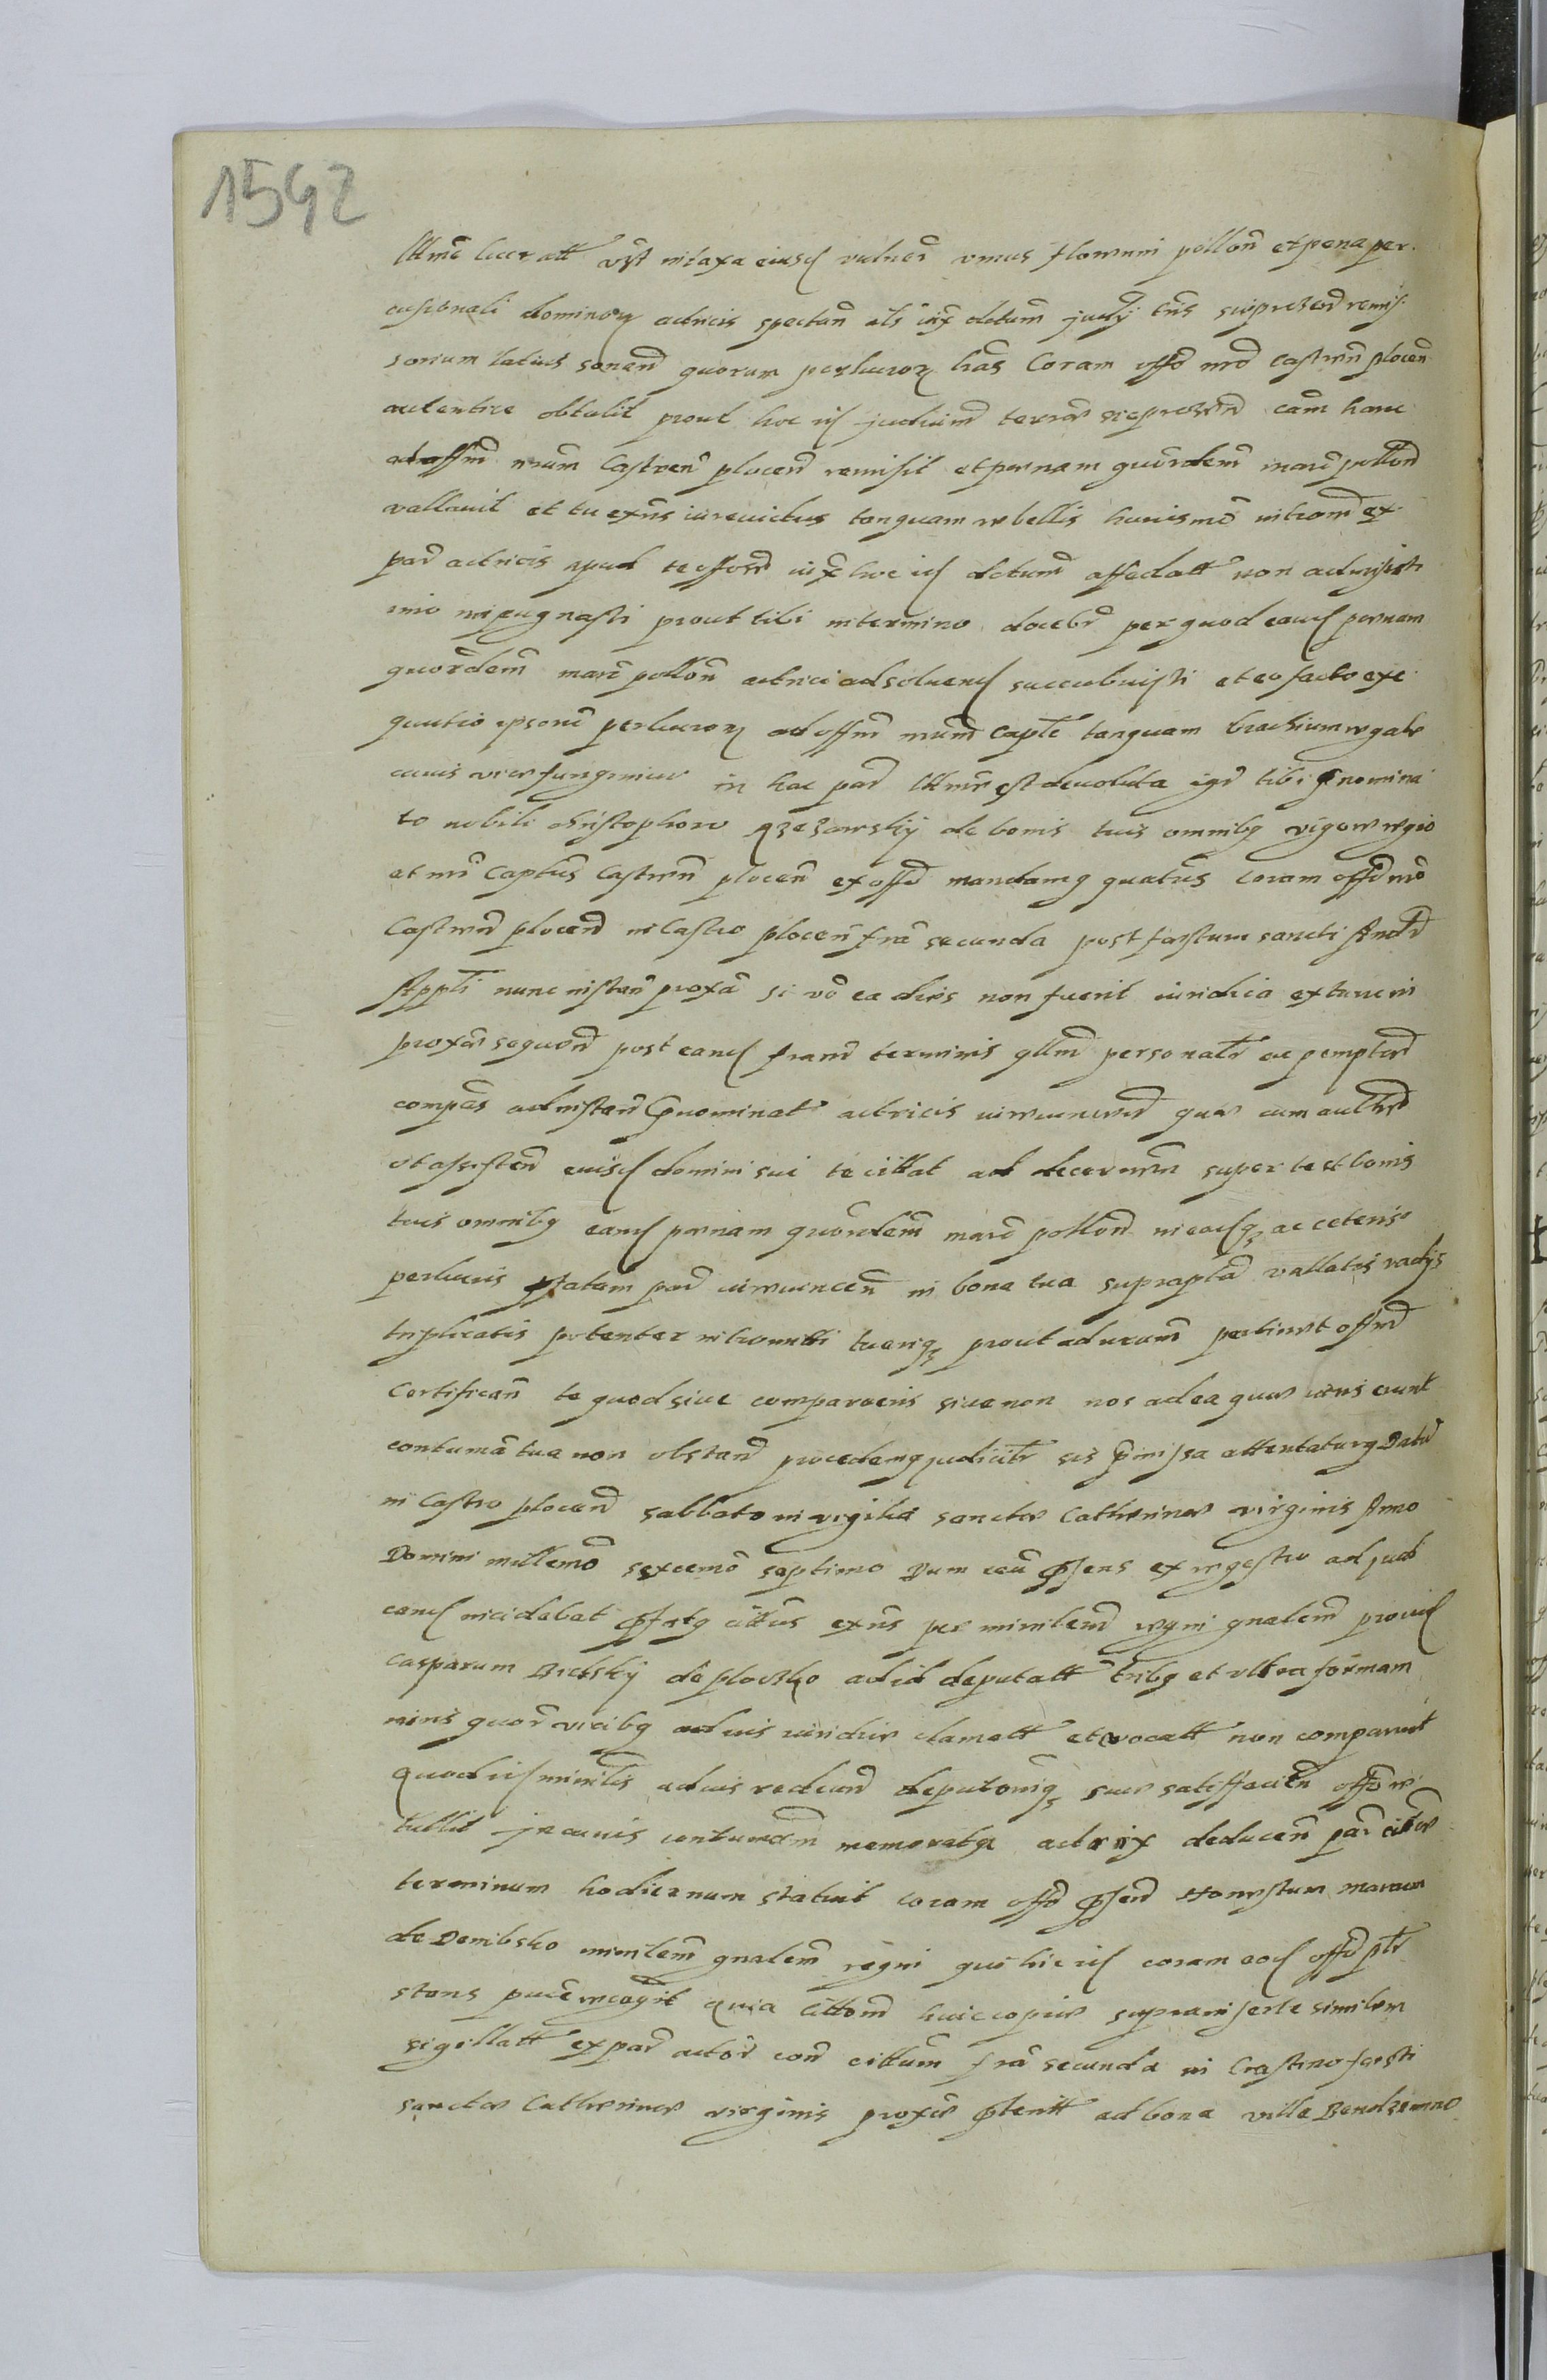 1542
lucratt vst in taxa eiusd vulner unius floreni pollon et pena per
cussionali dominorum actricis spectan als iux detum judy tris sierprzecen remis
sorium latius sonand quorum perlucror lras Coram offo nro castren plocen
autentice obtulit prout hoc id judicium terrae sierprzecen eam hanc
ad offm nrum Castren plocen remisit et poenam quordem marc pollon
vallavit et tu exns iurevictus tanquam rebellis huiusmoi introm ex
par actricis apud te offord iux hoc id detum affectatt non admisisti
imo repugnasti prout tibi in termino docebr per quod eand poenam
quordem marc pollon actrici ad solvend succubuisti et eo facto exe
quutio ipsorum perlucror ad offm nrum Captle tanquam brachium regale
cuius vices fungimur in hac par est devoluta igr tibi pnomina
to nobili christophoro de bonis tuis omnibq vigore regio
et nri Captus Castren plocen ex offo mandamq quatus coram offo nro
Castren plocen in Castro plocen fria secunda post faestum sancti Andr
Appli nunc instan proxa si vo ea dies non fuerit iuridica extunc in
proxis sequen post eand friam terminis gllm personalr ac pemptor
compas ad instan pnominat actricis quae cum auctte
et assisten eiusd domini sui te cittat ad decernen super te et bonis
tuis omnibq eand poenam quordem marc pollon in eadq ac ceteris
perlucris pfatam par in bona tua suprapta vallatis vadys
triplicatis potenter intromitti tueriq prout ad nrum pertinet offm
Certifican te quod sive comparueris sive non nos ad ea quae iuris erunt
contuma tua non obstan procedemq judicialr sis pmissa attentaturq Datu
in Castro plocen sabbato in vigilia sanctae Catherinae virginis Anno
Domini millemo sexcemo septimo Dum eeu psens ex regestro ad jud
eand incidebat pfatq cittus exns per minilem regni gnalem provid
Casparum Bielsky de plocsko ad id deputatt tribq et ultra formam
iuris quor vicibq ad ius iuridice clamatt et vocatt non comparuit
Quod id minilis ad ius rediend deputoniq suae satisfacien offo re
tullit In cuius contumam memorata actrix deducen par cittae
terminum hodiernum statuit coram offo psen Honestum marcum
de Dembsko minilem gnalem regni qui hic id coram eod offo plr
stans puce recogit quia littom huic copiae supra inserte similem
sigillatt ex par actor con cittum fria secunda in Crastino faesti
sanctae Catherinae virginis proxe pteritt ad bona villa Bendzimno